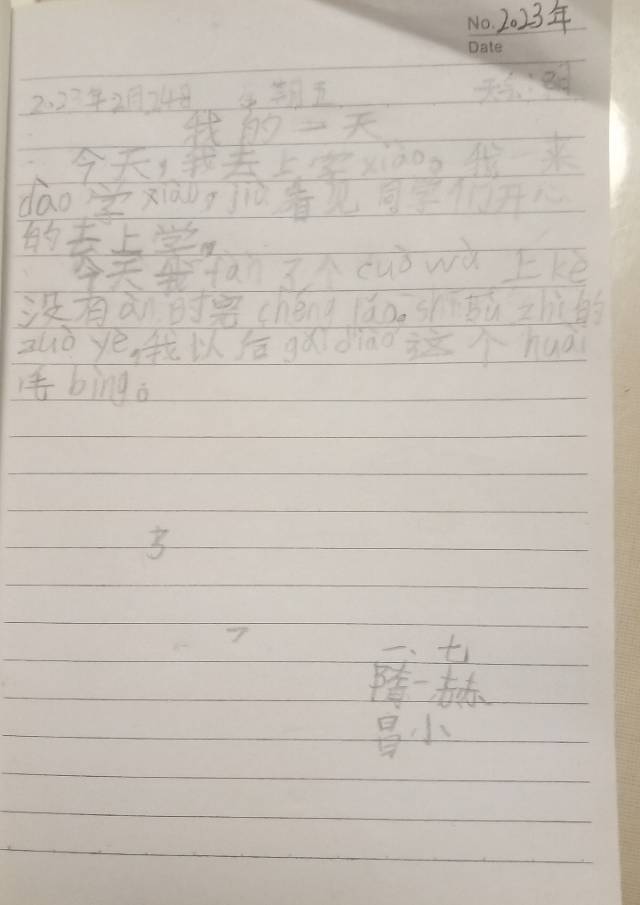 No. 2023年
Date
2023年2月24日 星期五 天气:阴
我的一天
今天,我去上学xiào。我一来
dào学xiào,jiù看见同学们开心
的去上学。
今天我fàn了个cuò wù 上kè
没有àn时完chéng lǎo shī bù zhì的
zuò yè,我以后gǎi diào这个huài
毛bìng。
一、七
隋一赫
昌小